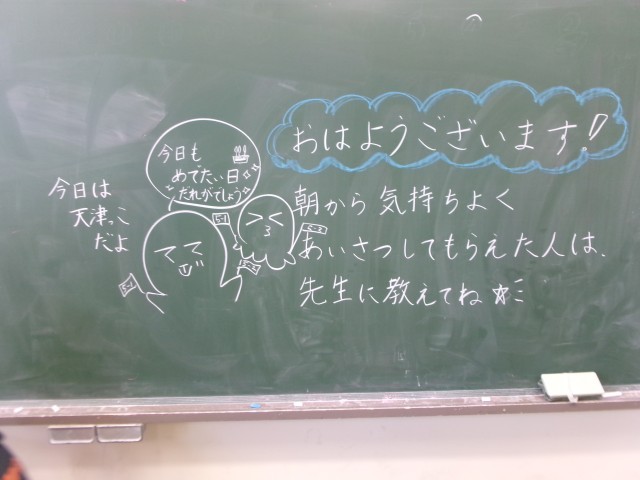 おはようございます!
朝から気持ちよく
あいさつしてもらえた人は、
先生に教えてね☆
今日も
めでたい日
だれがでしょう
今日は
天津っこ
だよ
5-1
5-1
5-2
5-2